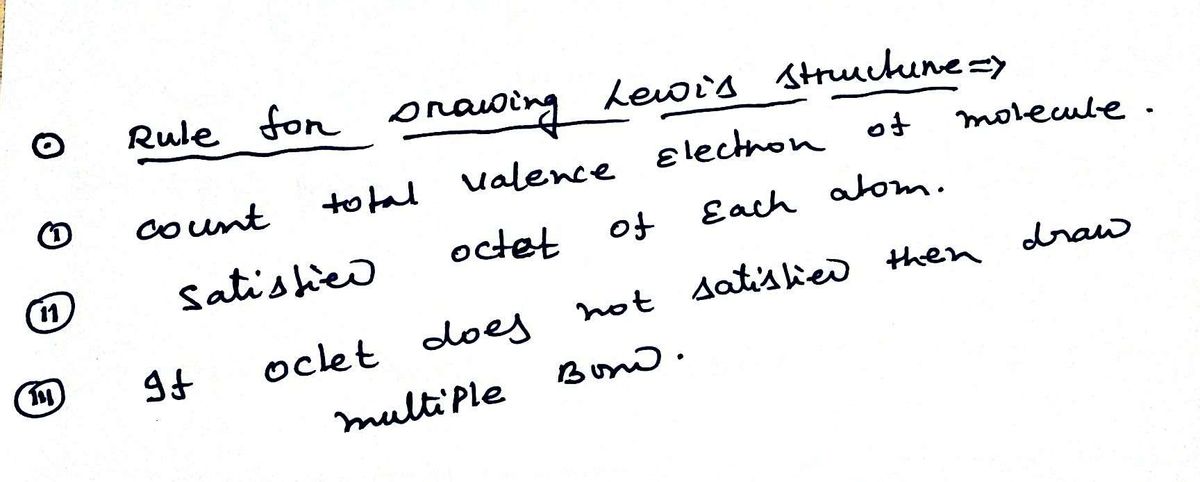 ⊙ Rule for Drawing Lewis structure ⇒
(i) count total valence Electron of molecule.
(ii) satisfied octet of Each atom.
(iii) If octet does not satisfied then draw
multiple Bond.